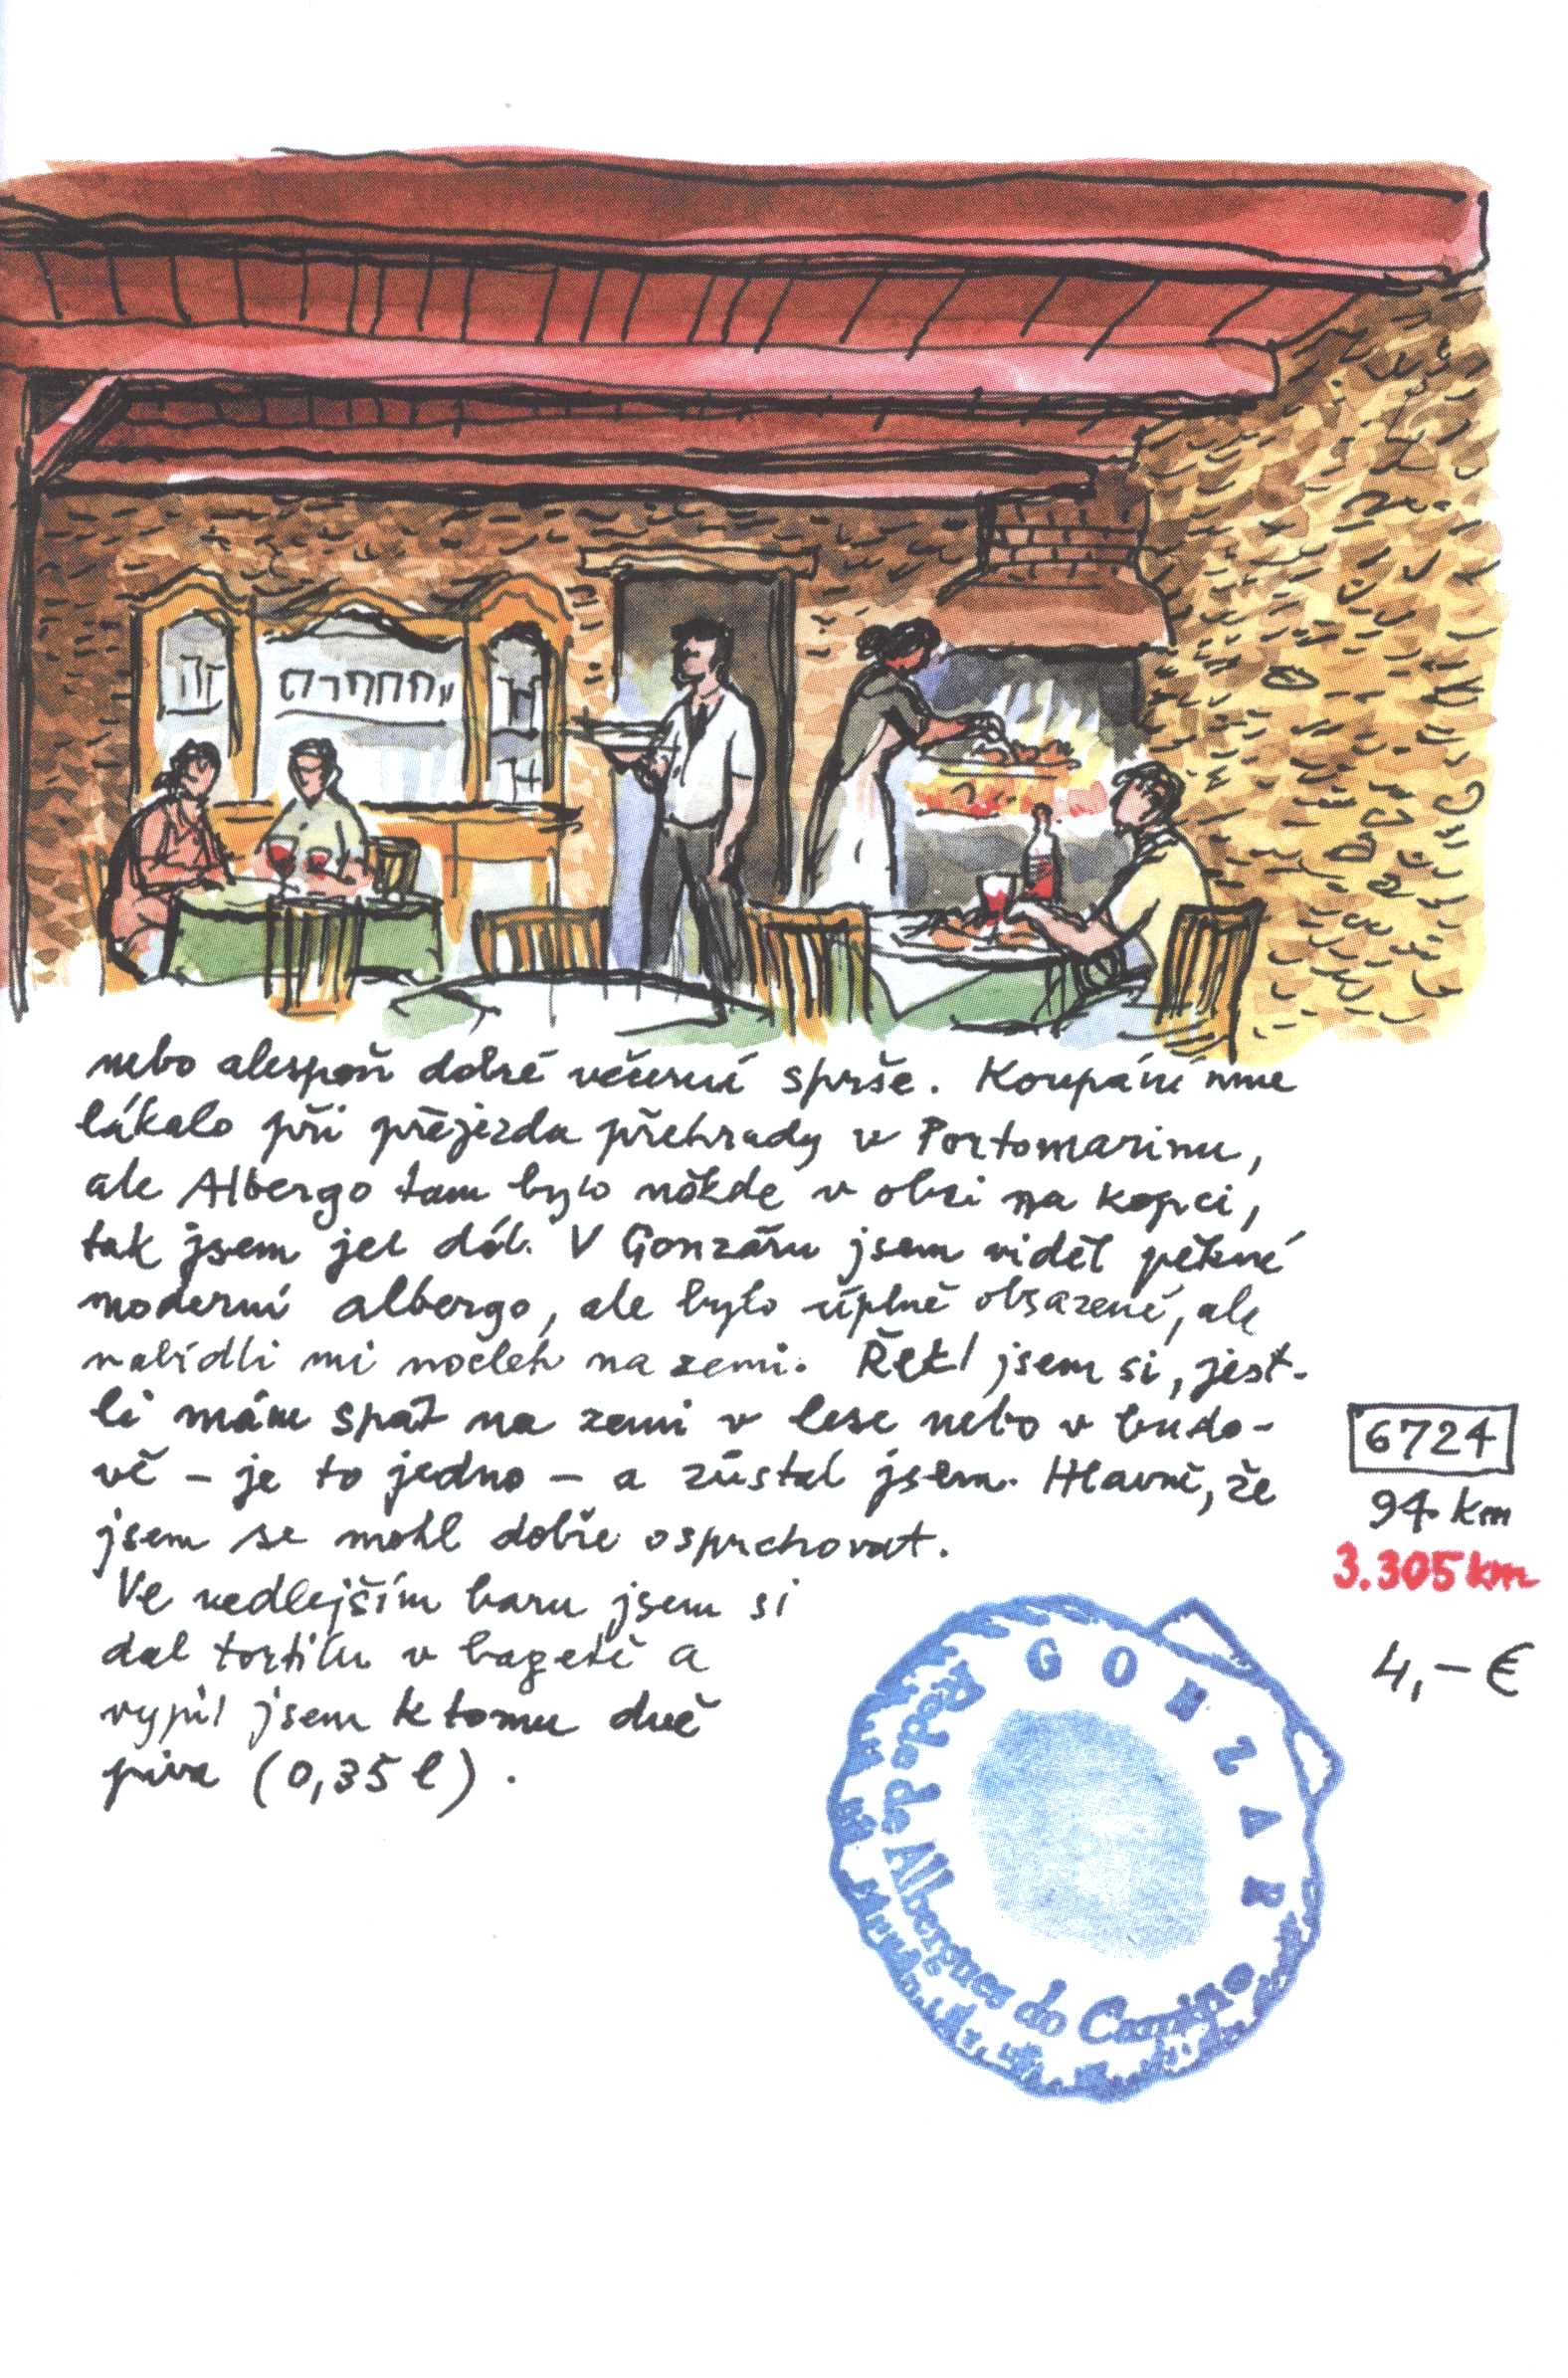 nebo alespoň dobré večerní sprše. Koupání mne
lákalo při přejezdu přehrady v Portomarinu,
ale Albergo tam bylo někde v obci na kopci,
tak jsem jel dál. V Gonzáru jsem viděl pěkné
moderní albergo, ale bylo úplně obsazené, ale
nabídli mi nocleh na zemi. Řekl jsem si, jest-
li mám spát na zemi v lese nebo v budo-
vě – je to jedno – a zůstal jsem. Hlavně, že
jsem se mohl dobře osprchovat.
Ve vedlejším baru jsem si
dal tortilu v bagetě a
vypil jsem k tomu dvě
piva (0,35 l).
6724
94 km
3.305 km
4,– €
GONZAR
Rede de Albergues do Camiño